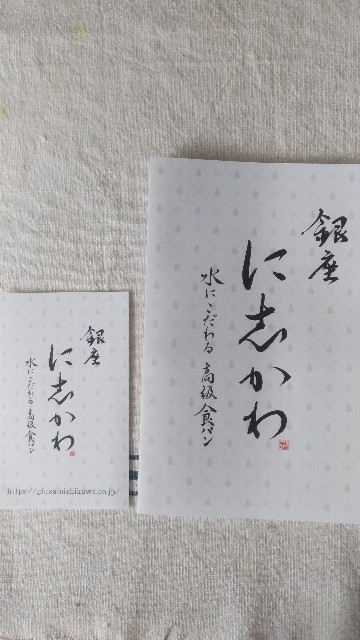 銀座
に志かわ
水にこだわる高級食パン
https://ginza-nishikawa.co.jp/
銀座
に志かわ
水にこだわる高級食パン